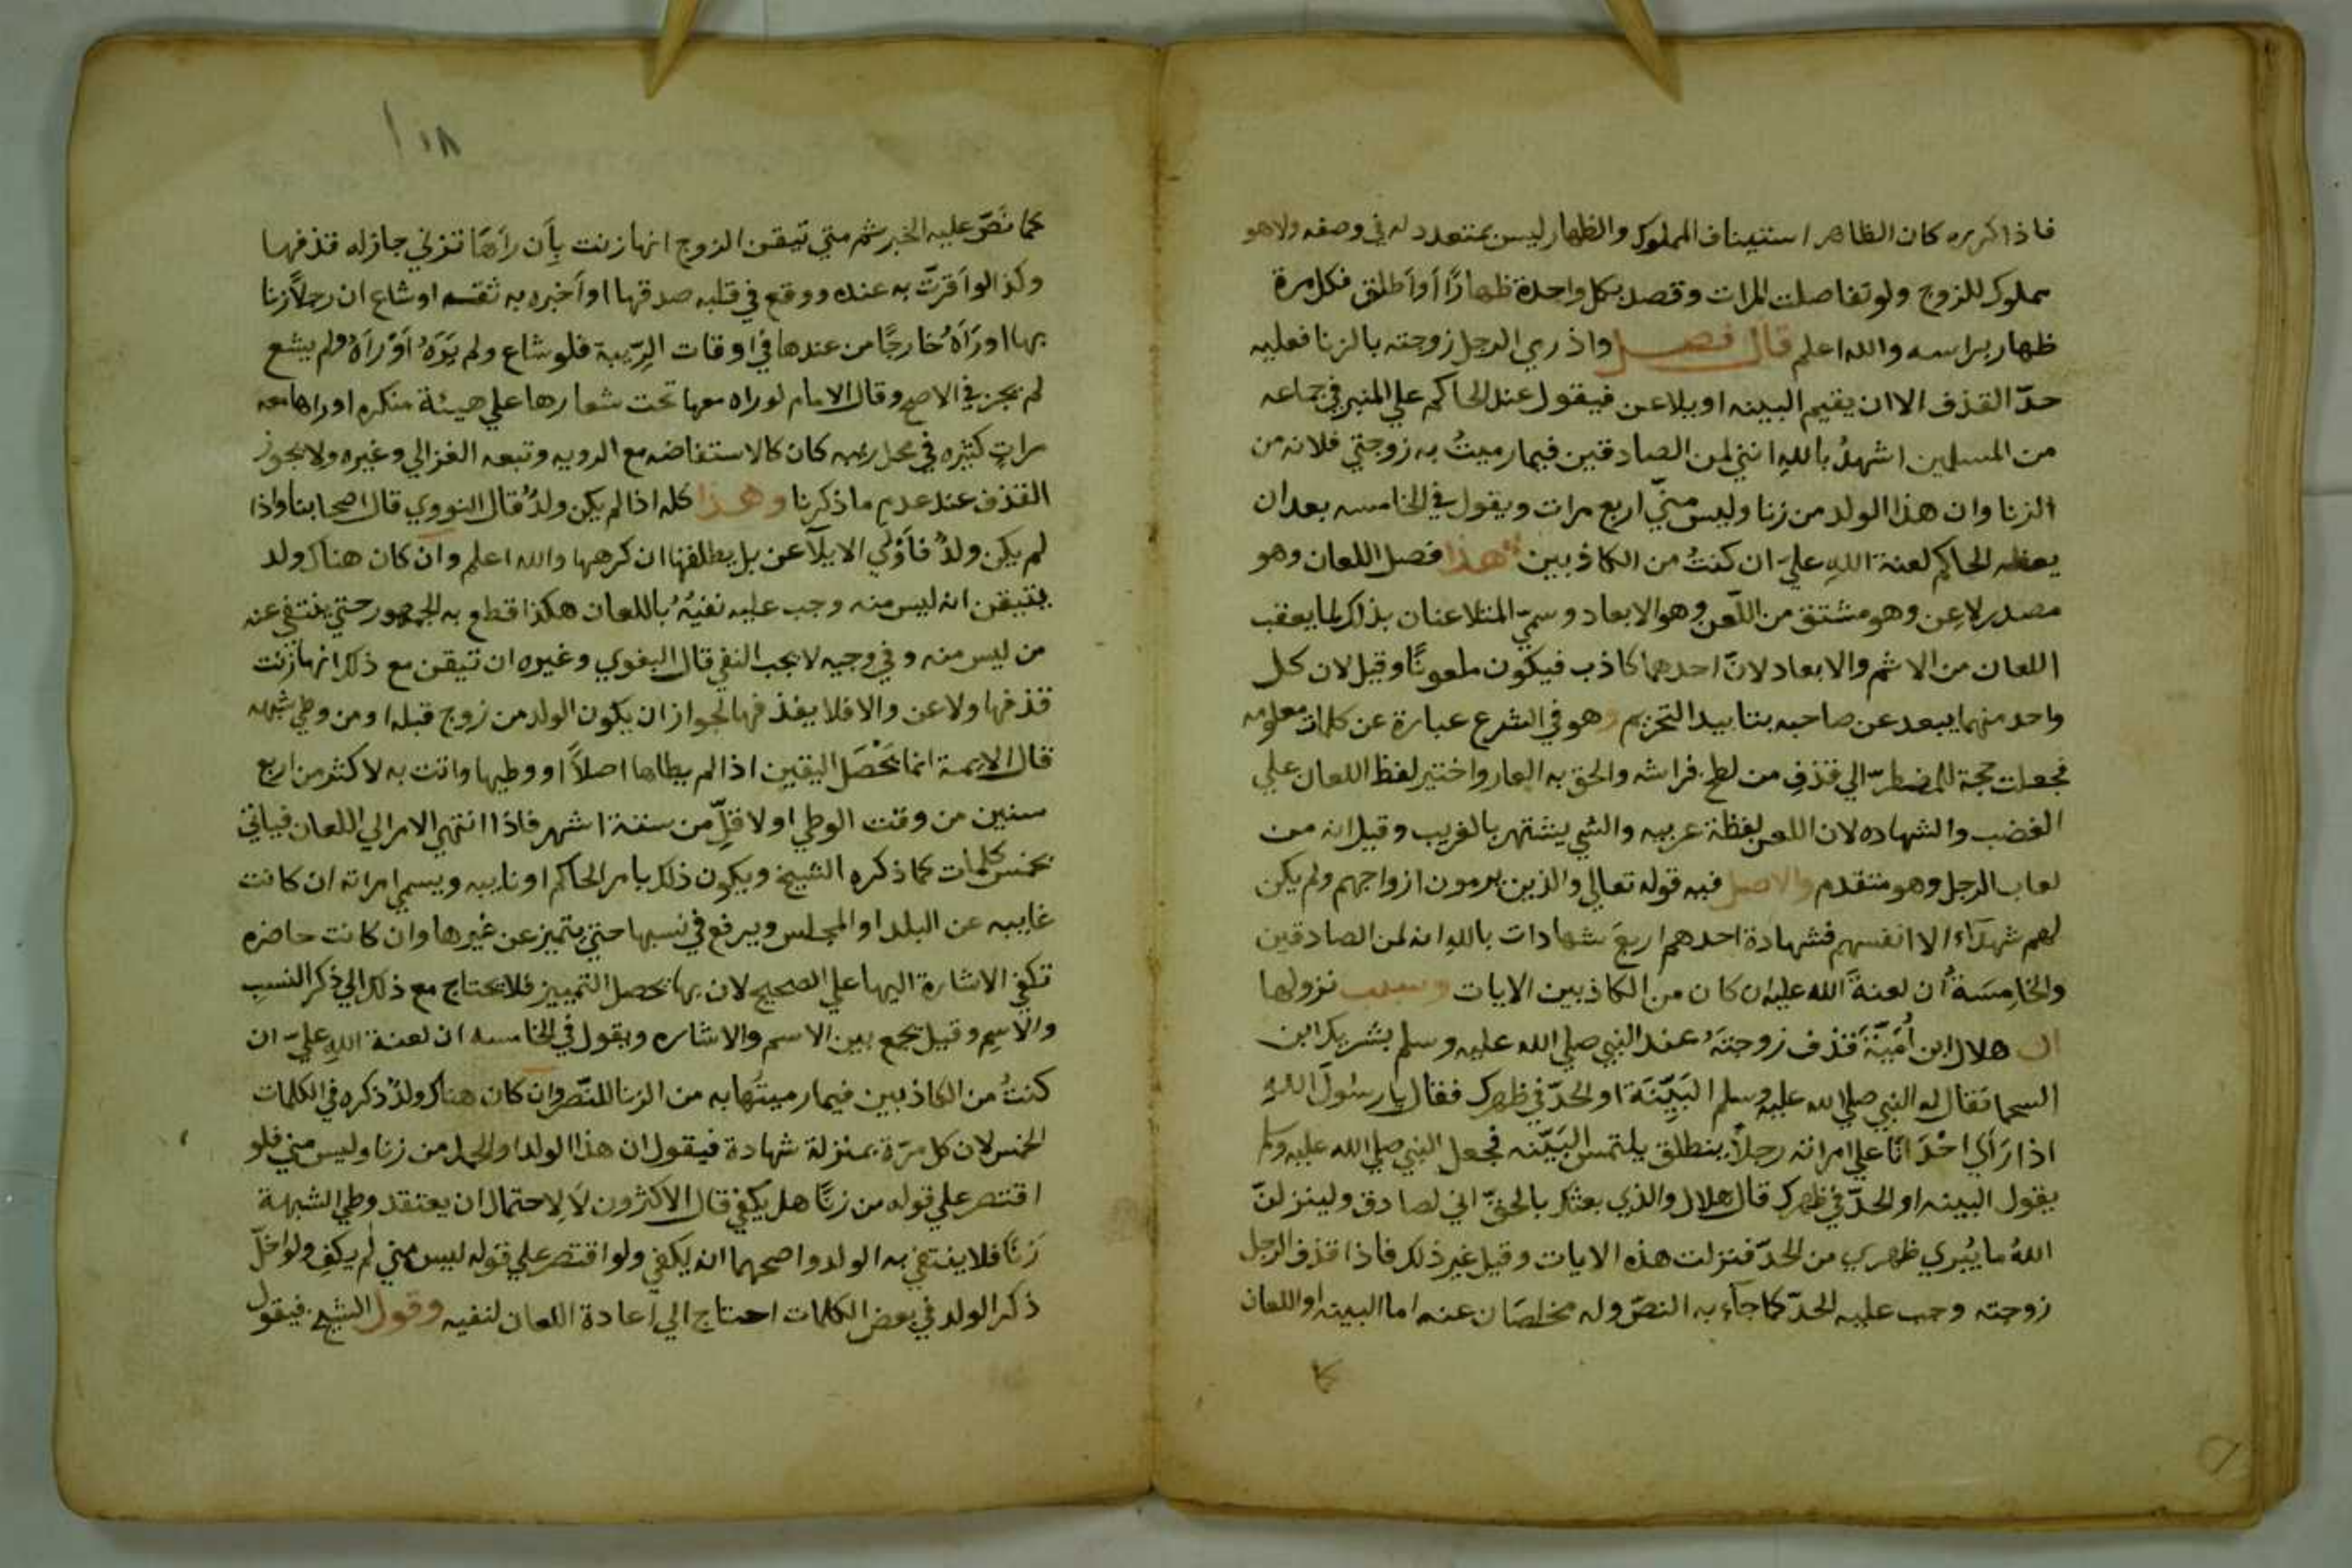 فاذا كرره كان الظاهر استيناف المملوك والظهار ليس بمتعدد له في وصفه ولا هو
مملوك للزوج ولو تفاصلت المرات وقصد بكل واحدة ظهارًا أو أطلق فكل مرة
ظهار براسه والله اعلم قال فصل واذ رمي الرجل زوجته بالزنا فعليه
حدّ القذف الا ان يقيم البينه او يلاعن فيقول عند الحاكم علي المنبر في جماعه
من المسلمين اشهدُ باللهِ انني لمن الصادقين فيما رميتُ به زوجتي فلانه من
الزنا وان هذا الولد من زنا وليس منيّ اربع مرات ويقول في الخامسه بعد ان
يعظه الحاكم لعنة اللهِ عليَّ ان كنتُ من الكاذبين هذا فصل اللعان وهو
مصدر لاعن وهو مشتق من اللّعن وهو الابعاد وسمّي المتلاعنان بذلك لما يعقب
اللعان من الاثم والابعاد لانّ احدهما كاذب فيكون ملعونًا وقيل لان كل
واحد منهما يبعد عن صاحبه بتابيد التحريم وهو في الشرع عبارة عن كلمات معلومه
جعلت حجة للمضطرّ الي قذفِ من لطخ فراشه والحق به العار واختير لفظ اللعان علي
الغضب والشهاده لان اللعن لفظة غريبه والشي يشتهر بالغريب وقيل انه من
لعاب الرجل وهو متقدم والاصل فيه قوله تعالي والذين يرمون ازواجهم ولم يكن
لهم شهدآء الا انفسهم فشهادة احدهم اربعَ شهادات باللهِ انه لمن الصادقين
والخامِسَةُ أن لعنةَ الله عليه ان كان من الكاذبين الايات وسبب نزولها
ان هلال ابن أُمَيَّةَ قذف زوجتَهُ عند النبي صلي الله عليه وسلم بشريك ابن
السحما فقال له النبي صلي الله عليه وسلم البَيِّنَة او الحدّ في ظهرك فقال يا رسولَ اللهِ
اذا رَأي احْدَانَا علي امراته رجلاً ينطلق يلتمس البَيّنه فجعل النبي صلي الله عليه وسلم
يقول البينه او الحدّ في ظهرك قال هلال والذي بعثك بالحقّ اني لصادق ولينزلنّ
اللهُ ما يُبري ظهري من الحدّ فنزلت هذه الايات وقيل غير ذلك فاذا قذف الرجل
زوجته وجب عليه الحدّ كما جآء به النصّ وله مخلصَان عنه اما البينه او اللعان
كما
١٠٨
كما نَصَّ عليه الخبر ثم متي تيقن الزوج انها زنت بِأَن رآهَا تزني جاز له قذفها
وكذا لو اَقرتّ به عنده ووقع في قلبه صدقها او أَخبره به ثقة او شاع ان رجلاً زنا
بها او رَآهُ خارجًا من عندها في اوقات الرِّيبة فلو شاع ولم يَرَهُ أوْ رآهُ ولم يشع
لم يجز في الاصح وقال الامام لو راه معها تحت شعارها علي هيئة منكره او راها معه
مراتٍ كثيره في محل ريبه كان كالاستفاضه مع الرويه وتبعه الغزالي وغيره ولا يجوز
القذف عند عدم ما ذكرنا وهذا كله اذا لم يكن ولدٌ قال النووي قال اصحابنا واذا
لم يكن ولدٌ فأَوْلي الا يلآعن بل يطلقها ان كرهها والله اعلم وان كان هناك ولد
يتيقن انه ليس منه وجب عليه نفيُهُ باللعان هكذا قطع به الجمهور حتي ينتفي عنه
من ليس منه وفي وجيه لا يجب النفي قال البغوي وغيره ان تيقن مع ذلك انها زنت
قذفها ولاعن والا فلا يقذفها لجواز ان يكون الولد من زوج قبله او من وطي شبهه
قال الايمة انما يَحْصَل اليقين اذا لم يطاها اصلاً او وطيها واتت به لاكثر من اربع
سنين من وقت الوطي او لاقلّ من ستة اشهر فاذا انتهي الامر الي اللعان فياتي
بخمس كلمات كما ذكره الشيخ ويكون ذلك بامر الحاكم او نايبه ويسمي امراته ان كانت
غايبه عن البلد او المجلس ويرفع في نسبها حتي يتميز عن غيرها وان كانت حاضره
تكفي الاشارة اليها علي الصحيح لان بها تحصل التمييز فلا يحتاج مع ذلك الي ذكر النسب
والاسِم وقيل يجمع بين الاسم والاشاره ويقول في الخامسه ان لعنة اللهِ عليَّ ان
كنتُ من الكاذبين فيما رميتُها به من الزنا للنَّص وان كان هناك ولدٌ ذكره في الكلمات
الخمس لان كل مرّة بمنزلة شهادة فيقول ان هذا الولد او الحمل من زنا وليس مني فلو
اقتصر علي قوله من زنًا هل يكفي قال الاكثرون لَا لِاحتمال ان يعتقد وطي الشبهة
زنًا فلا ينتفي به الولد واصحهما انه يكفي ولو اقتصر علي قوله ليس مني لم يكفِ ولو اخلّ
ذكر الولد في بعض الكلمات احتاج الي اعادة اللعان لنفيه وقول الشيخ فيقول